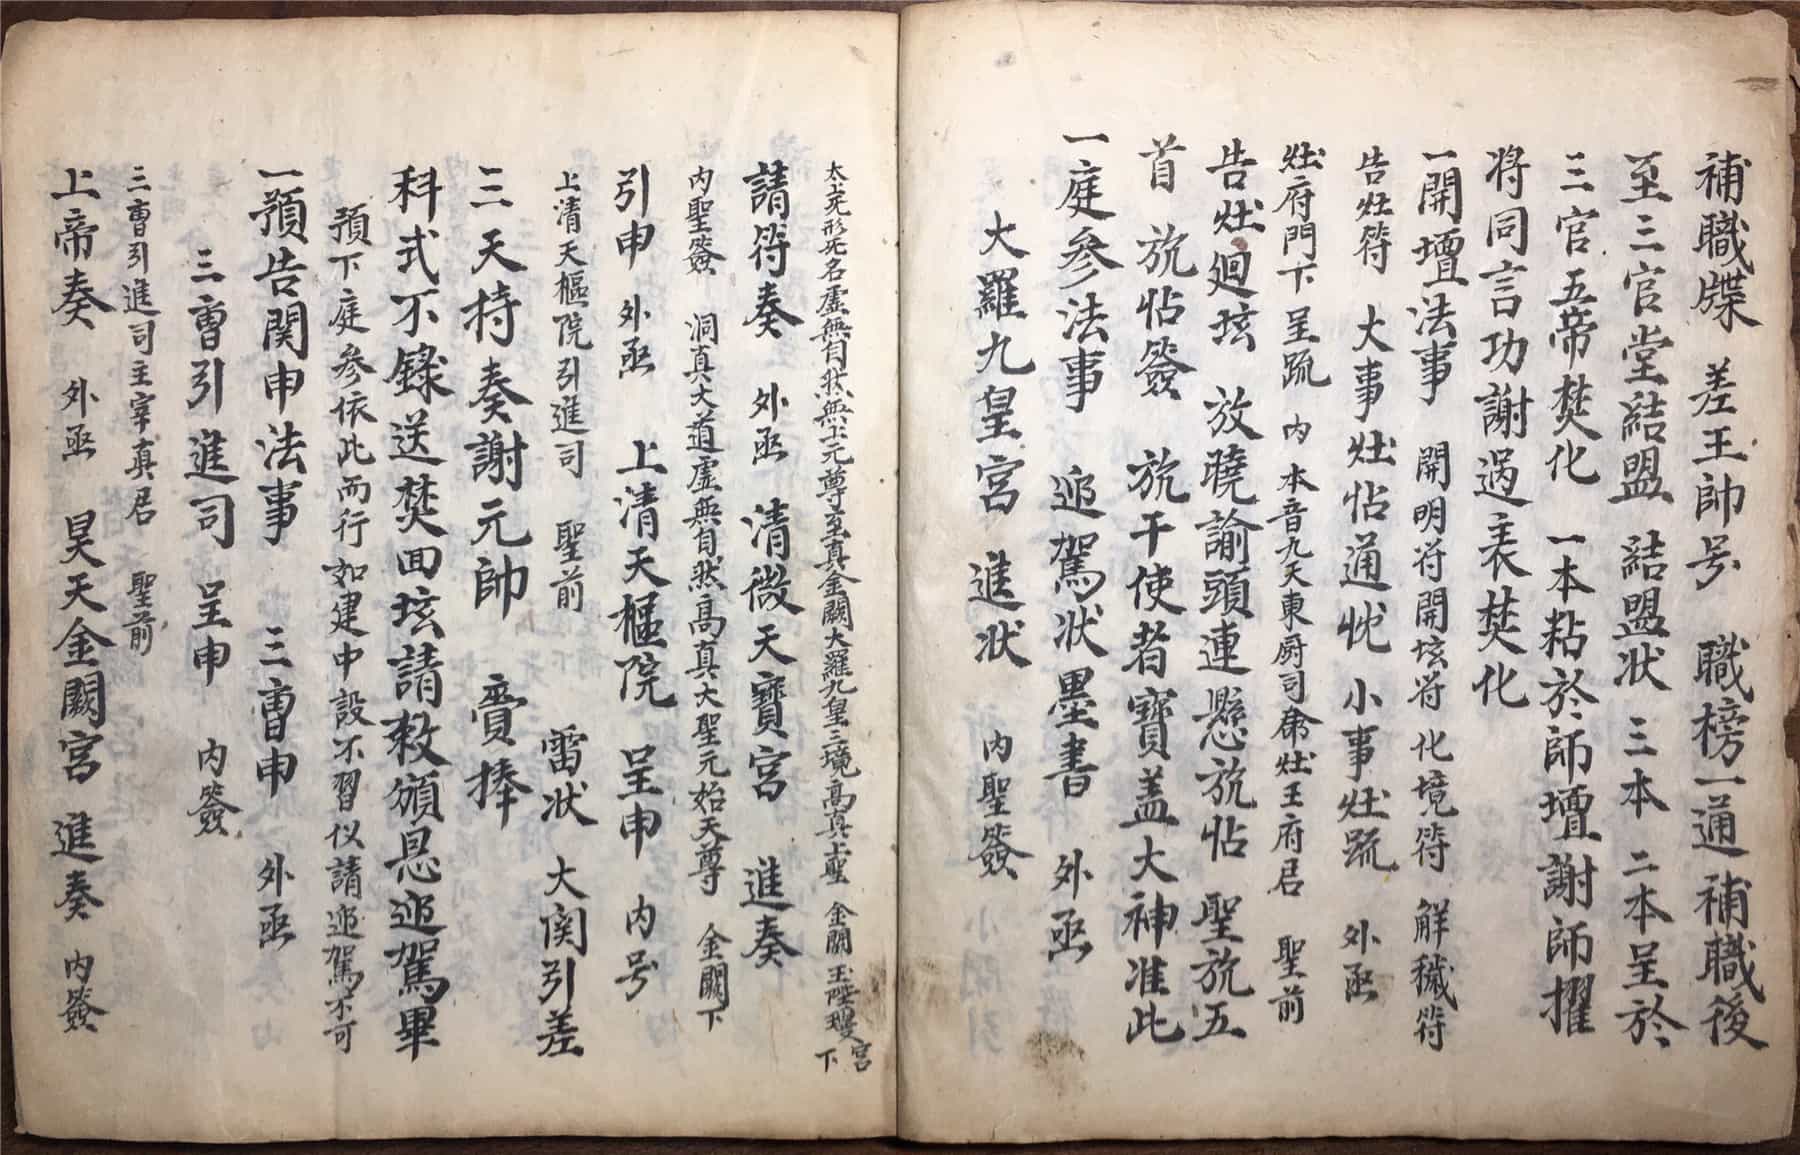 補職牒 差王帥号 職榜一通 補職後
至三官堂結盟 結盟状 三本 二本呈於
三官五帝焚化 一本粘於師壇謝師擢
将同言功謝過表焚化
一開壇法事 開明符開坛符化境符 解穢符
告灶符 大事灶帖通忱 小事灶疏 外函
灶府門下呈疏 内 本音九天東厨司命灶王府君 聖前
告灶廻坛 放曉諭頭連懸旐帖 聖旐五
首 旐帖簽 旐干使者寶盖大神准此
一庭参法事 迎駕状墨書 外函
大羅九皇宮 進状 内聖簽
太无形无名虚無自然無上元尊至真金闕大羅九皇三境高真上聖 金闕玉陛瓊宮下
請符奏 外函 清微天寶宮 進奏
内聖簽 洞真大道虚無自然高真大聖元始天尊 金闕下
引申 外函 上清天樞院 呈申 内号
上清天樞院引進司 聖前 雷状 大関引差
三天持奏謝元帥 賫捧
科式不錄送焚回坛請敕頒恳迎駕畢
預下庭参依此而行如建中設不習仪請迎駕不可
一預告関申法事 三曹申 外函
三曹引進司 呈申 内簽
三曹引進司主宰真君 聖前
上帝奏 外函 昊天金闕宮 進奏 内簽